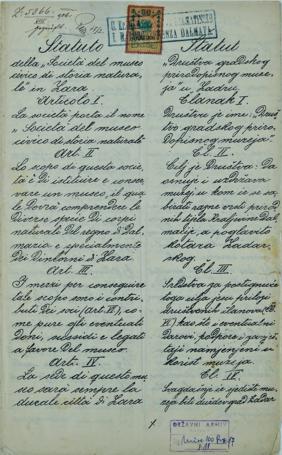 Statuto
della „Società del museo
civico di storia natura-
le in Zara.
Articolo I.
La società porta il nome
„Società del museo
civico di storia naturale“
Art. II
Lo scopo di questa socie-
tà è di istituire e conser-
vare un museo, il qua-
le dovrà comprendere le
diverse specie di corpi
naturali del regno di Dal-
mazia e specialmente
dei dintorni di Zara.
Art. III.
I mezzi per conseguire
tale scopo sono i contri-
buti dei soci (art. IV), co-
me pure gli eventuali
doni, sussidi e legati
a favore del museo.
Art. IV.
La sede di questo mu-
seo sarà sempre la
ducale città di Zara
Statut
„Društva gradskog
prirodopisnog muze-
ja u Zadru“
Članak I.
Društvu je ime: „Druš-
tvo gradskog priro-
dopisnog muzeja“.
Čl. II.
Cilj je Društva: da
osnuje i uzdržava
muzej u kom će se sa-
birati razne vrsti prirod-
nih tijela Kraljevine Dal-
macije, a poglavito
kotara Zadar-
skog.
Čl. III.
Sredstva za postignuće
toga cilja jesu prilozi
društvenih članova (Čl.
IV) kao što i eventualni
darovi, podpore i zavje-
štaji namijenjeni u
korist muzeja.
Čl. IV.
muzeja
biti grad Zadar
DRŽAVNI ARHIV